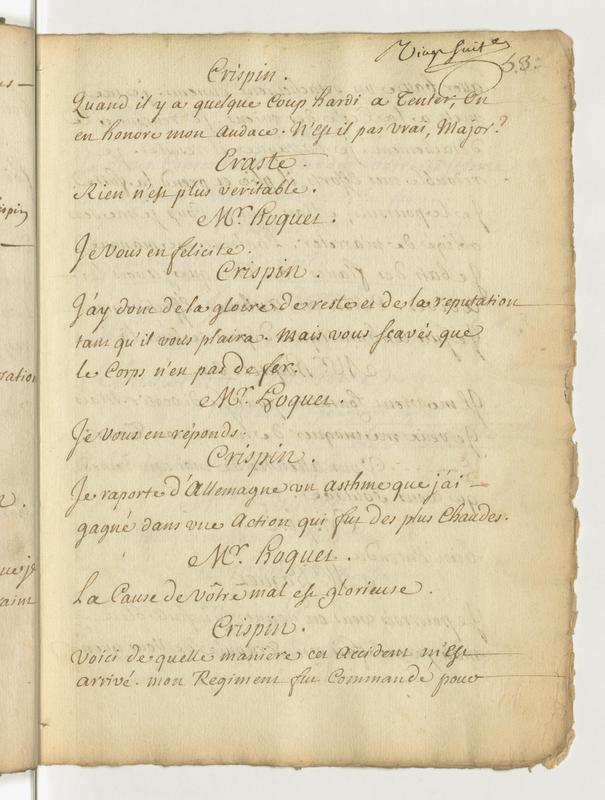 Vingt huite
53.
Crispin.
Quand il y a quelque Coup hardi a Tenter, On
en honore mon audace. N'est il pas vrai, Major?
Eraste.
Rien n'est plus veritable.
Mr. Hoquet.
Je Vous en félicite.
Crispin.
J'ay donc dela gloire de reste et de la reputation
tant qu'il vous plaira. Mais vous sçavés que
le Corps n'en pas de fer.
Mr. Hoquet.
Je vous en réponds.
Crispin.
Je raporte d'Allemagne un asthme que j'ai
gagné dans une Action qui fut des plus Chaudes.
Mr. Hoquet.
La Cause de vôtre mal est glorieuse.
Crispin.
Voici de quelle maniere cet Accident m'est
arrivé. mon Regiment fut Commandé pour